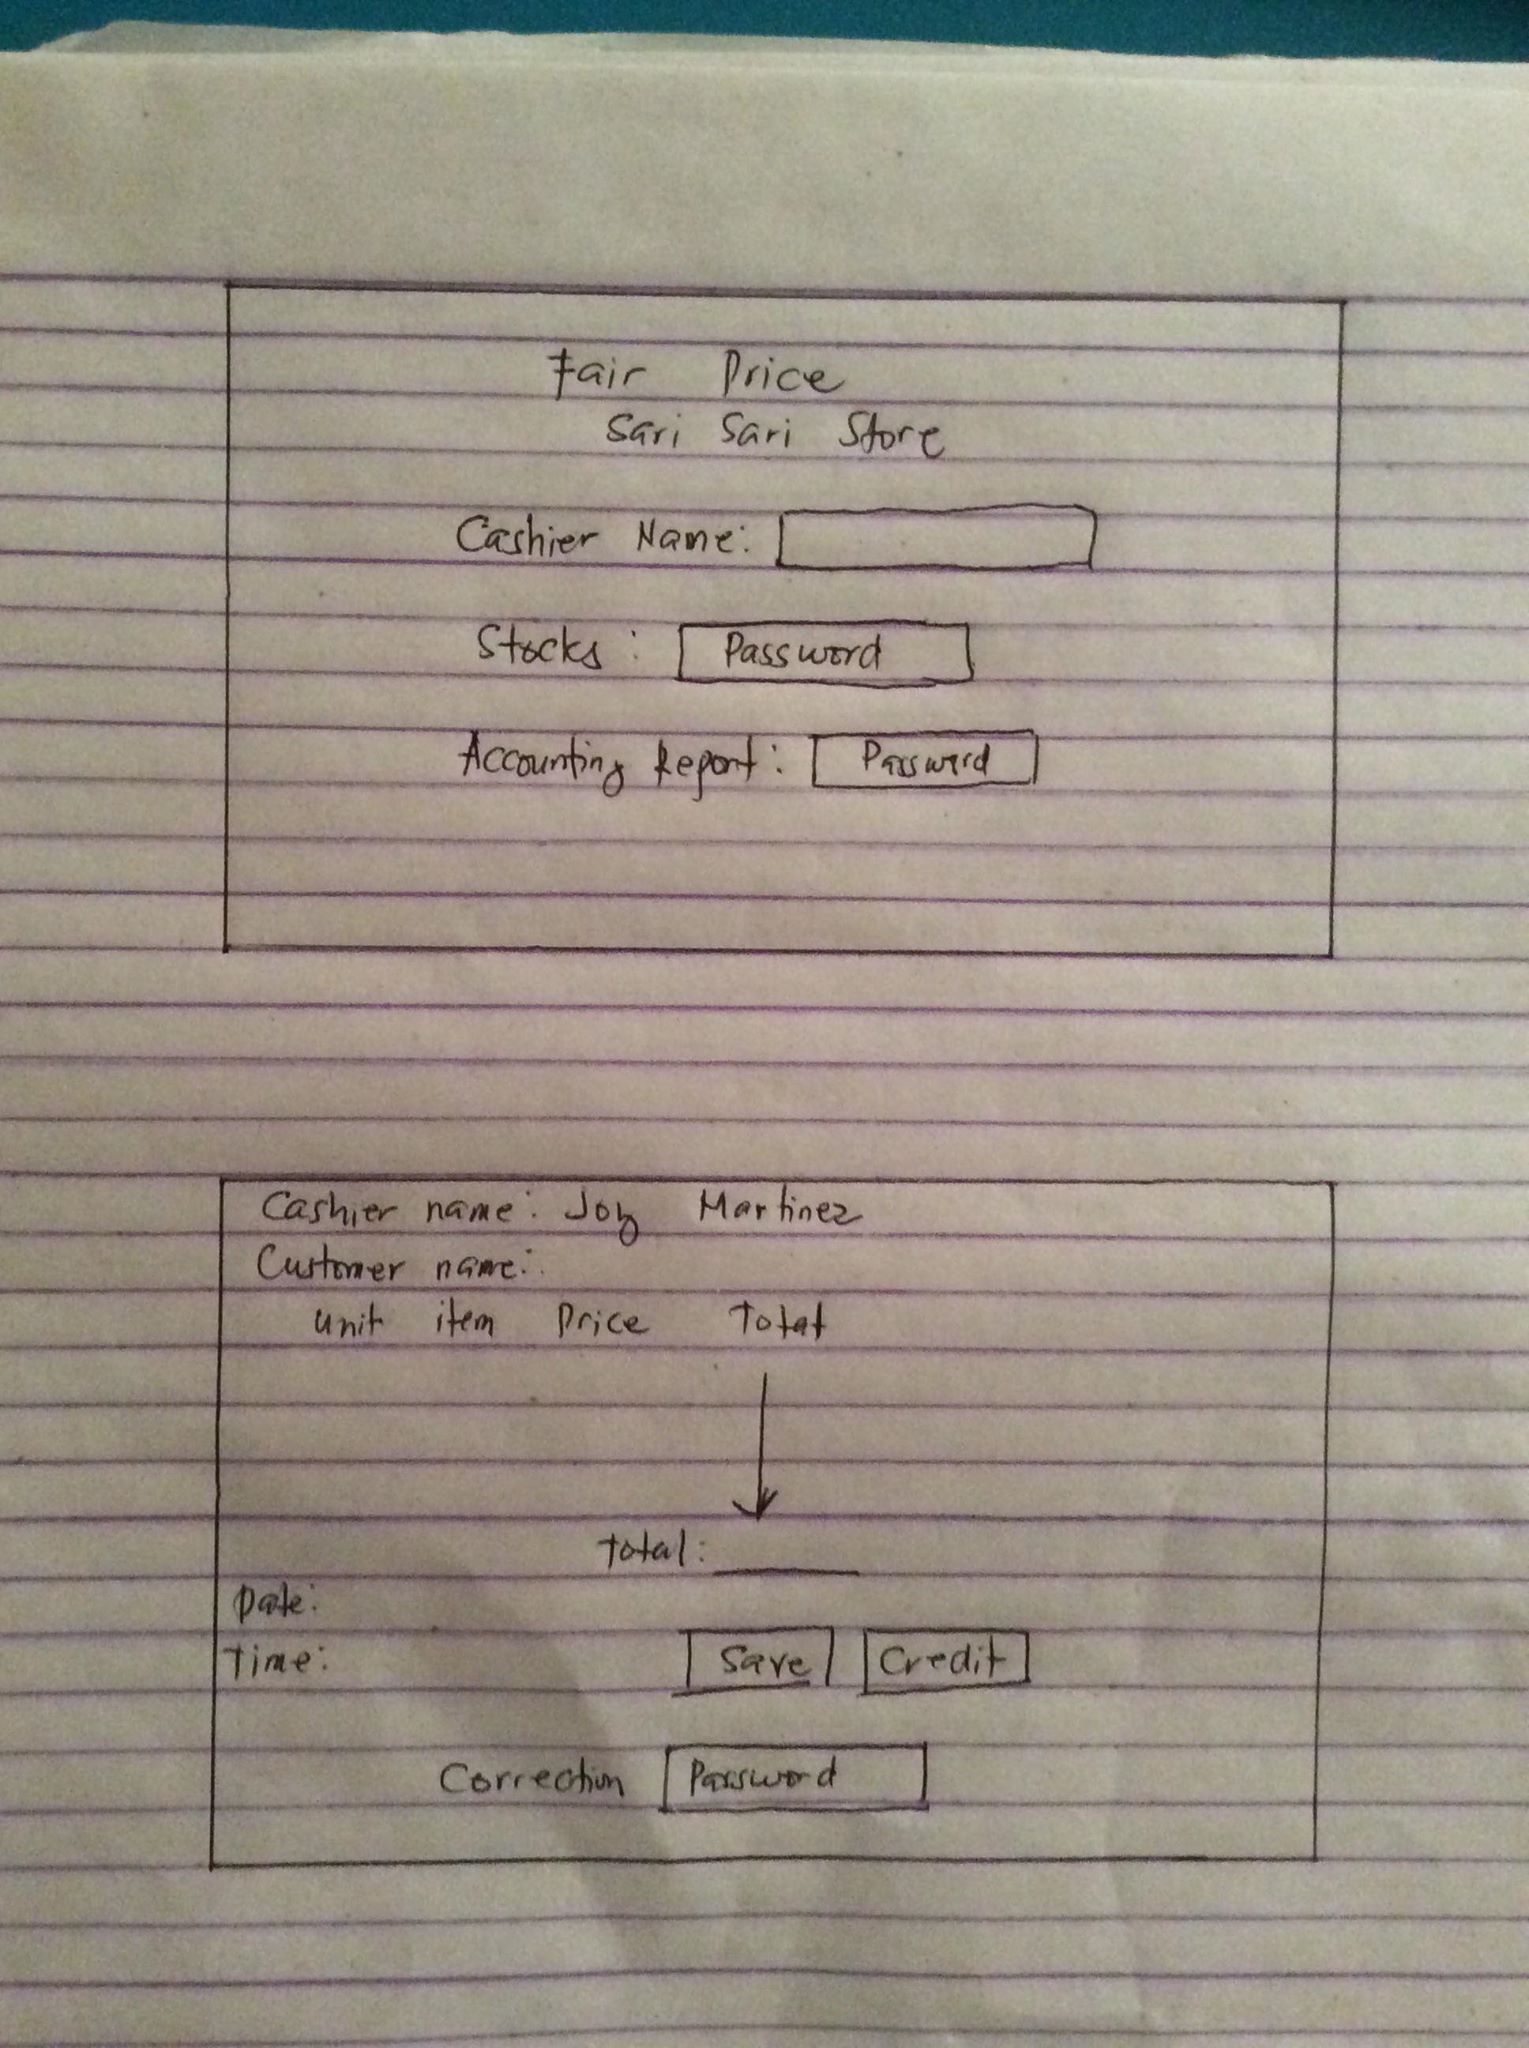 Fair Price
Sari Sari Store
Cashier Name:
Stocks: Password
Accounting Report: Password
Cashier name: Joy Martinez
Customer name:
unit item Price Total
Total:
Date:
Time:
Save Credit
Correction Password